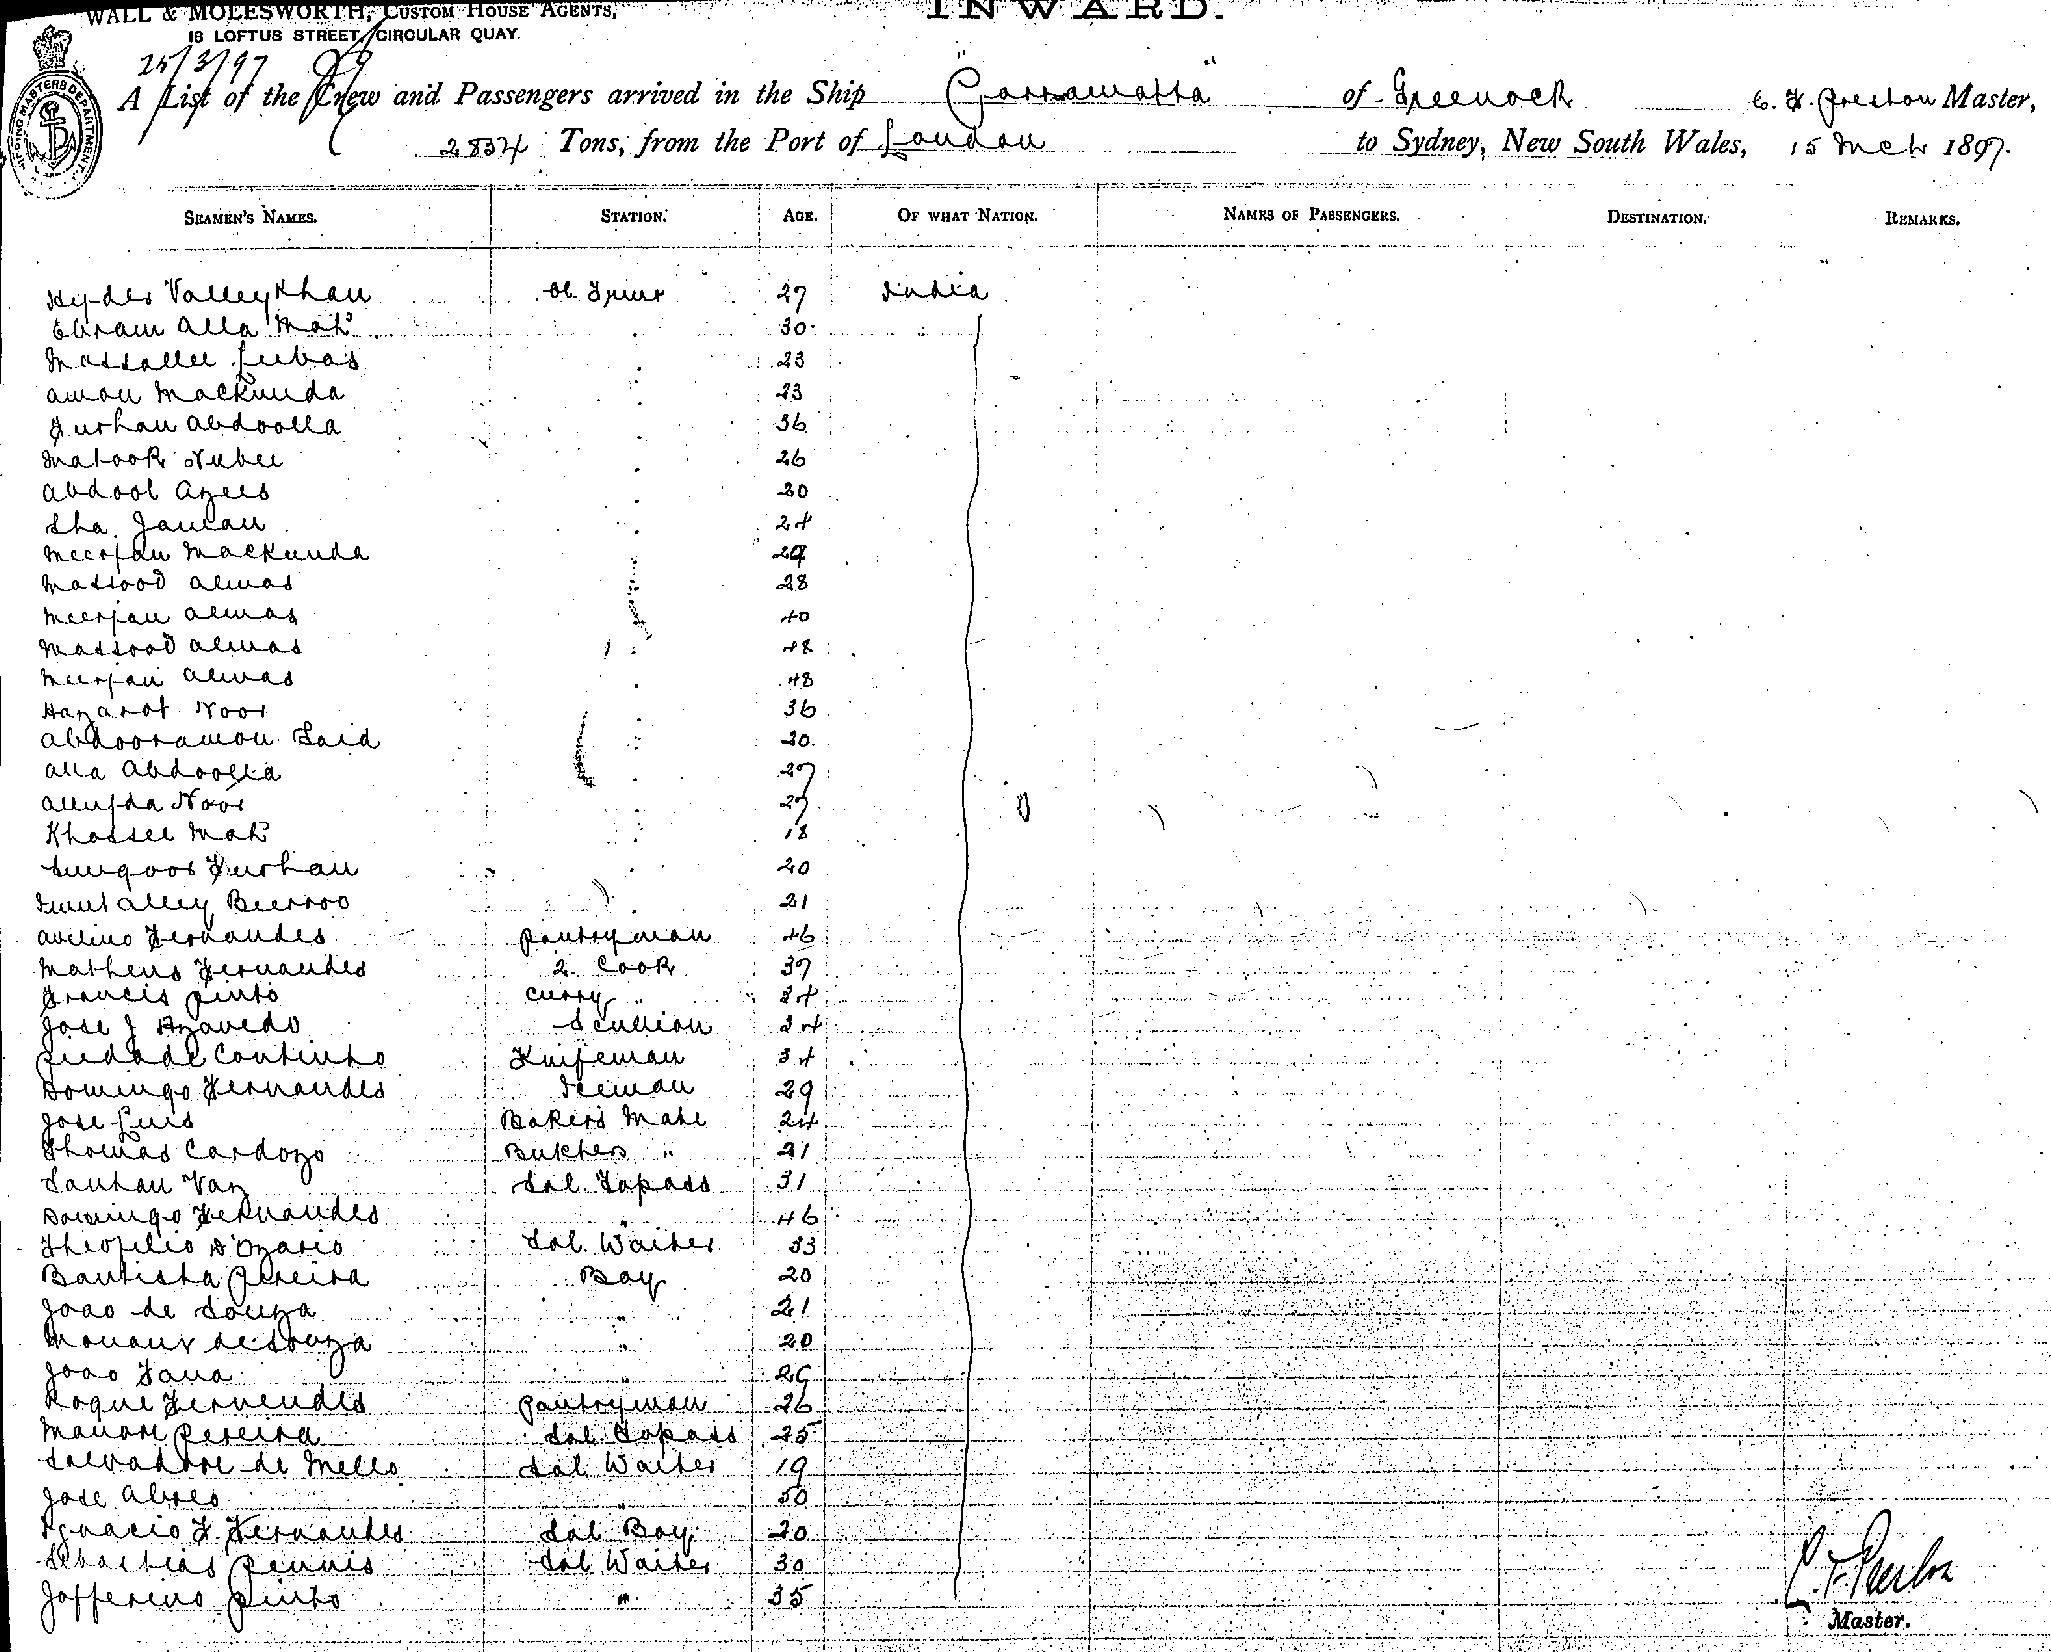 WALL & MOLESWORTH, CUSTOM HOUSE AGENTS,
18 LOFTUS STREET, CIRCULAR QUAY.
INWARD.
25/3/97
A List of the Crew and Passengers arrived in the Ship "Parramatta" of Greenock C. F. Preston Master,
2834 Tons, from the Port of London to Sydney, New South Wales, 15 Mch 1897.
SEAMEN'S NAMES. STATION. AGE. OF WHAT NATION. NAMES OF PASSENGERS. DESTINATION. REMARKS.
Hyder Valleykhan 27 India
Ebram Alla Mahd 30
Massallee Feubas 23
Aman Mackunda 23
Furhan Abdoolla 36
Mabook Nubee 26
Abdool Azees 20
Sha Jaman 24
Meerjan Mackunda 29
Massood Almas 28
Meerjan Almas 40
Massood Almas 48
Meerjan Almas 48
Hazarot Noor 36
Abdooramon Said 20
Alla Abdoolla 27
Noor 27
Khassee Mahd 18
Sungoor Furhan 20
Alley Beerroo 21
Avelino Fernandes Pantryman 46
Matheus Fernandes 2 Cook 37
Francis Pinto Curry " 24
Jose J Azavedo Scullion 24
Piedade Coutinho Knifeman 34
Domingo Fernandes Iceman 29
Jose Luis Bakers Mate 24
Thomas Cardozo Butchers " 21
Santan Vaz Sal. Topass 31
Domingo Fernandes " 46
Theofilio D'Ozario Sal. Waiter 33
Bautista Pereira Boy 20
Joao de Souza " 21
de Souza " 20
Joao "
Roque Fernendes Pantryman 26
Manoel Pereira Sal Topass 25
Salvadore de Mello Sal Waiter 19
Jose Abreo " 50
Ignacio F. Fernandes Sal Boy 20
Sebastias Sal Waiter 30
Jofferino Pinto " 35
C. F. Preston
Master.